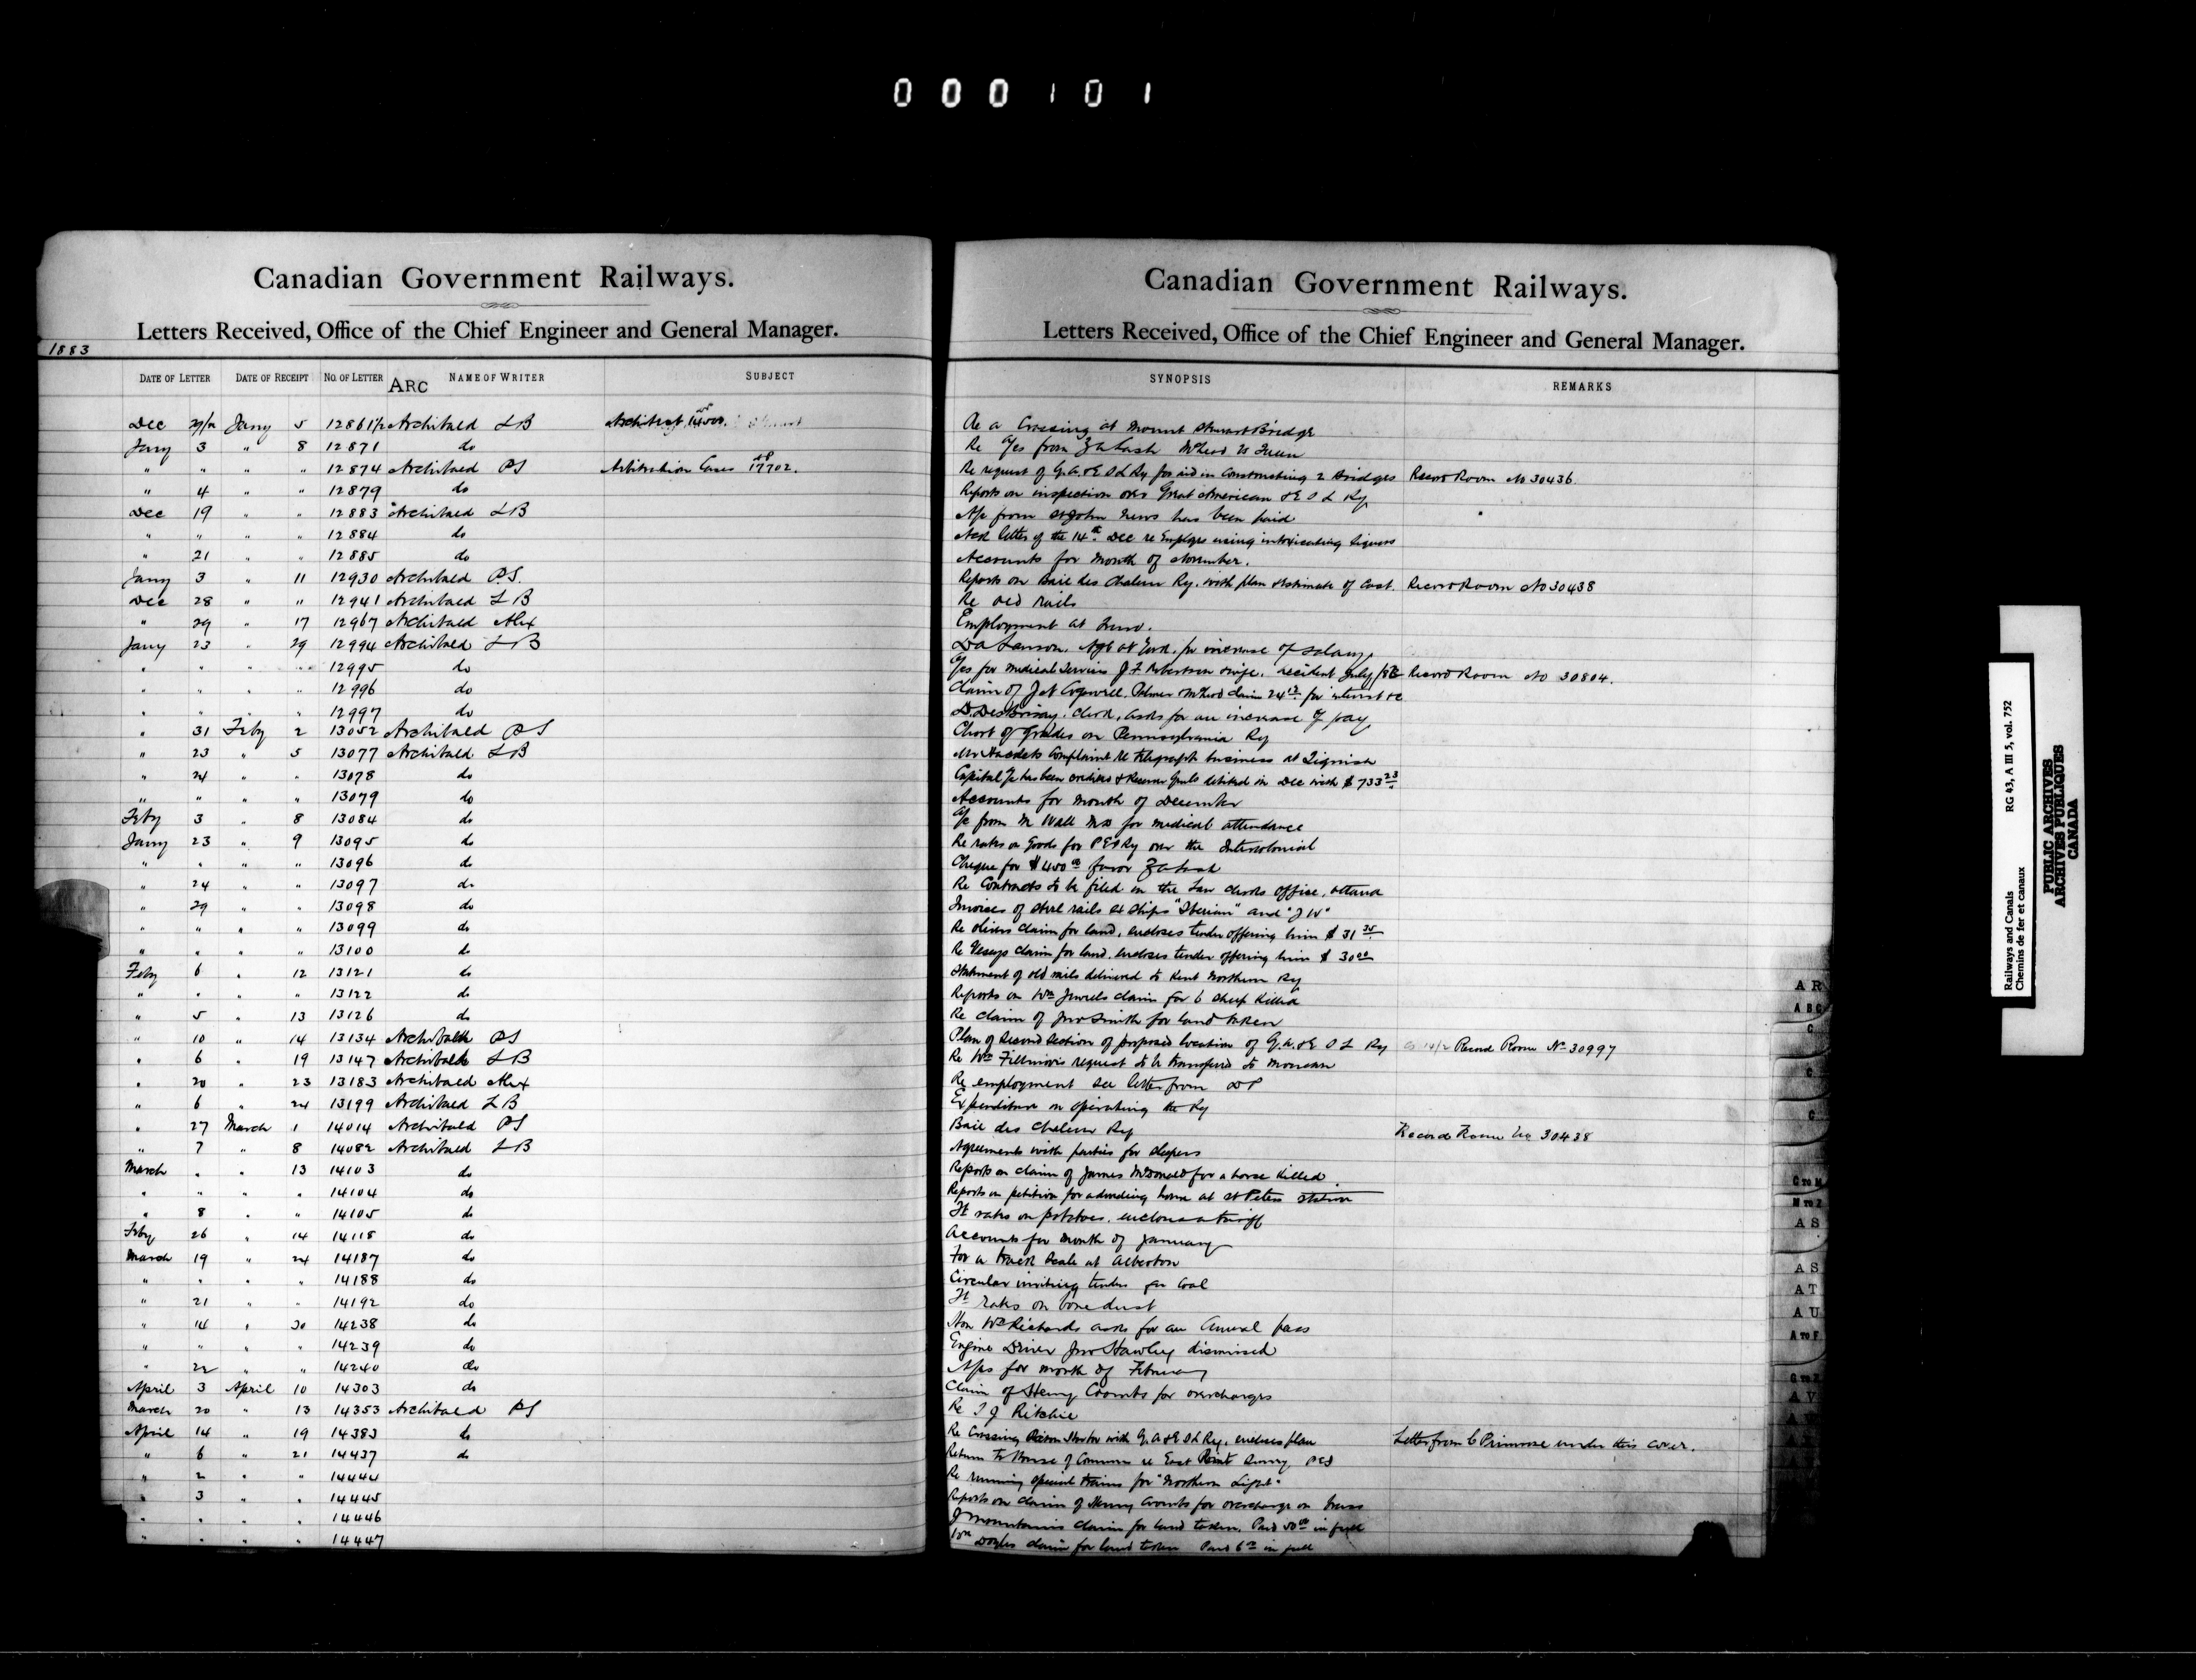 000101
Canadian Government Railways.
Letters Received, Office of the Chief Engineer and General Manager.
1883
DATE OF LETTER DATE OF RECEIPT NO. OF LETTER ARC NAME OF WRITER SUBJECT
Dec 29/82 Jany 5 12861½ Archibald LB Architect 14500.
Jany 3 " 8 12871 do
" " " " 12874 Archibald PS Arbitration Cases 17702.
" 4 " " 12879 do
Dec 19 " " 12883 Archibald LB
" " " " 12884 do
" 21 " " 12885 do
Jany 3 " 11 12930 Archibald P.S.
Dec 28 " " 12941 Archibald LB
" 29 " 17 12967 Archibald Alex
Jany 23 " 29 12994 Archibald LB
" " " " 12995 do
" " " " 12996 do
" " " " 12997 do
" 31 Feby 2 13052 Archibald PS
" 23 " 5 13077 Archibald LB
" 24 " " 13078 do
" " " " 13079 do
Feby 3 " 8 13084 do
Jany 23 " 9 13095 do
" " " " 13096 do
" 24 " " 13097 do
" 29 " " 13098 do
" " " " 13099 do
" " " " 13100 do
Feby 6 " 12 13121 do
" " " " 13122 do
" 5 " 13 13126 do
" 10 " 14 13134 Archibald PS
" 6 " 19 13147 Archibald LB
" 20 " 23 13183 Archibald Alex
" 6 " 24 13199 Archibald LB
" 27 March 1 14014 Archibald PS
" 7 " 8 14082 Archibald LB
March " " 13 14103 do
" " " " 14104 do
" 8 " " 14105 do
Feby 26 " 14 14118 do
March 19 " 24 14187 do
" " " " 14188 do
" 21 " " 14192 do
" 14 " 30 14238 do
" " " " 14239 do
" 22 " " 14240 do
April 3 April 10 14303 do
March 20 " 13 14353 Archibald PS
April 14 " 19 14383 do
" 6 " 21 14437 do
" 2 " " 14444
" 3 " " 14445
" " " " 14446
" " " " 14447
Canadian Government Railways.
Letters Received, Office of the Chief Engineer and General Manager.
SYNOPSIS REMARKS
Re a Crossing at Mount Stewart Bridge
Re a/cs from Z A Lash McLeod vs
Re request of G.A. & E S L Ry for aid in Constructing 2 Bridges Record Room No 30436
Reports on inspection over Great American & E S L Ry
A/c from St John News has been paid
Ack letter of the 14th Dec re Employes using intoxicating liquors
Accounts for month of November.
Reports on Baie des Chaleur Ry. with plan & estimate of Cost. Record Room No 30438
Re old rails
Employment at Truro.
Agt at York, for increase of salary
A/cs for medical services J F Robertson & wife, accident July /82 Record Room No 30804.
Claim of J N Cogswell, Palmer & McLeod claim for interest &c
D. DesBrisay, Clerk, asks for an increase of pay
Chart of grades on Pennsylvania Ry
Complaint re telegraph business at Tignish
Capital a/c has been credited & Receiver Genls debited in Dec with $ 733 23
Accounts for month of December
A/c from M Wall MD for medical attendance
Re rates on Goods for P E I Ry over the Intercolonial
Cheque for $400 00 favor Z A Lash
Re Contracts to be filed in the Law Clerks Office, Ottawa
Invoices of steel rails ex ships "Iberian" and "J W"
Re Olivers claim for land, encloses tender offering him $ 31 35
Re Veseys claim for land, encloses tender offering him $ 30 00
Statement of old rails delivered to Kent Northern Ry
Reports on Wm Jewels claim for 6 sheep killed
Re claim of Jno Smith for land taken
Plan of Second Section of proposed location of G.A. & E S L Ry 14/2 Record Room No 30997
Re Wm Fillmore's request to be transferred to Moncton
Re employment see letter from DP
Expenditure on operating the Ry
Baie des Chaleur Ry Record Room No 30438
Agreements with parties for sleepers
Reports on claim of James McDonald for a horse killed
Reports on petition for a dwelling house at St Peters Station
Ft rates on potatoes, encloses a tariff
Accounts for month of January
For a track scale at Alberton
Circular inviting tenders for Coal
Ft rates on bone dust
Hon Wm Richards asks for an Annual pass
Engine Driver Jno Hawley dismissed
A/cs for month of February
Claim of Henry Coombs for overcharges
Re T J Ritchie
Re Crossing Pictou Harbor with G.A & E S L Ry, encloses plan Letter from C Primrose under this cover.
Return to House of Commons re East Point Survey P E I
Re running special trains for "Northern Light"
Reports on claim of Henry Coombs for overcharge on
J Mountains claim for land taken. Paid 50 00 in full
Wm Doyles claim for land taken Paid 6 00 in full
AR
ABC
C
C
C
C TO M
M TO Z
AS
AS
AT
AU
A TO F
G TO Z
AV
AW
Railways and Canals RG 43, A III 5, vol. 752
Chemins de fer et canaux
PUBLIC ARCHIVES
ARCHIVES PUBLIQUES
CANADA